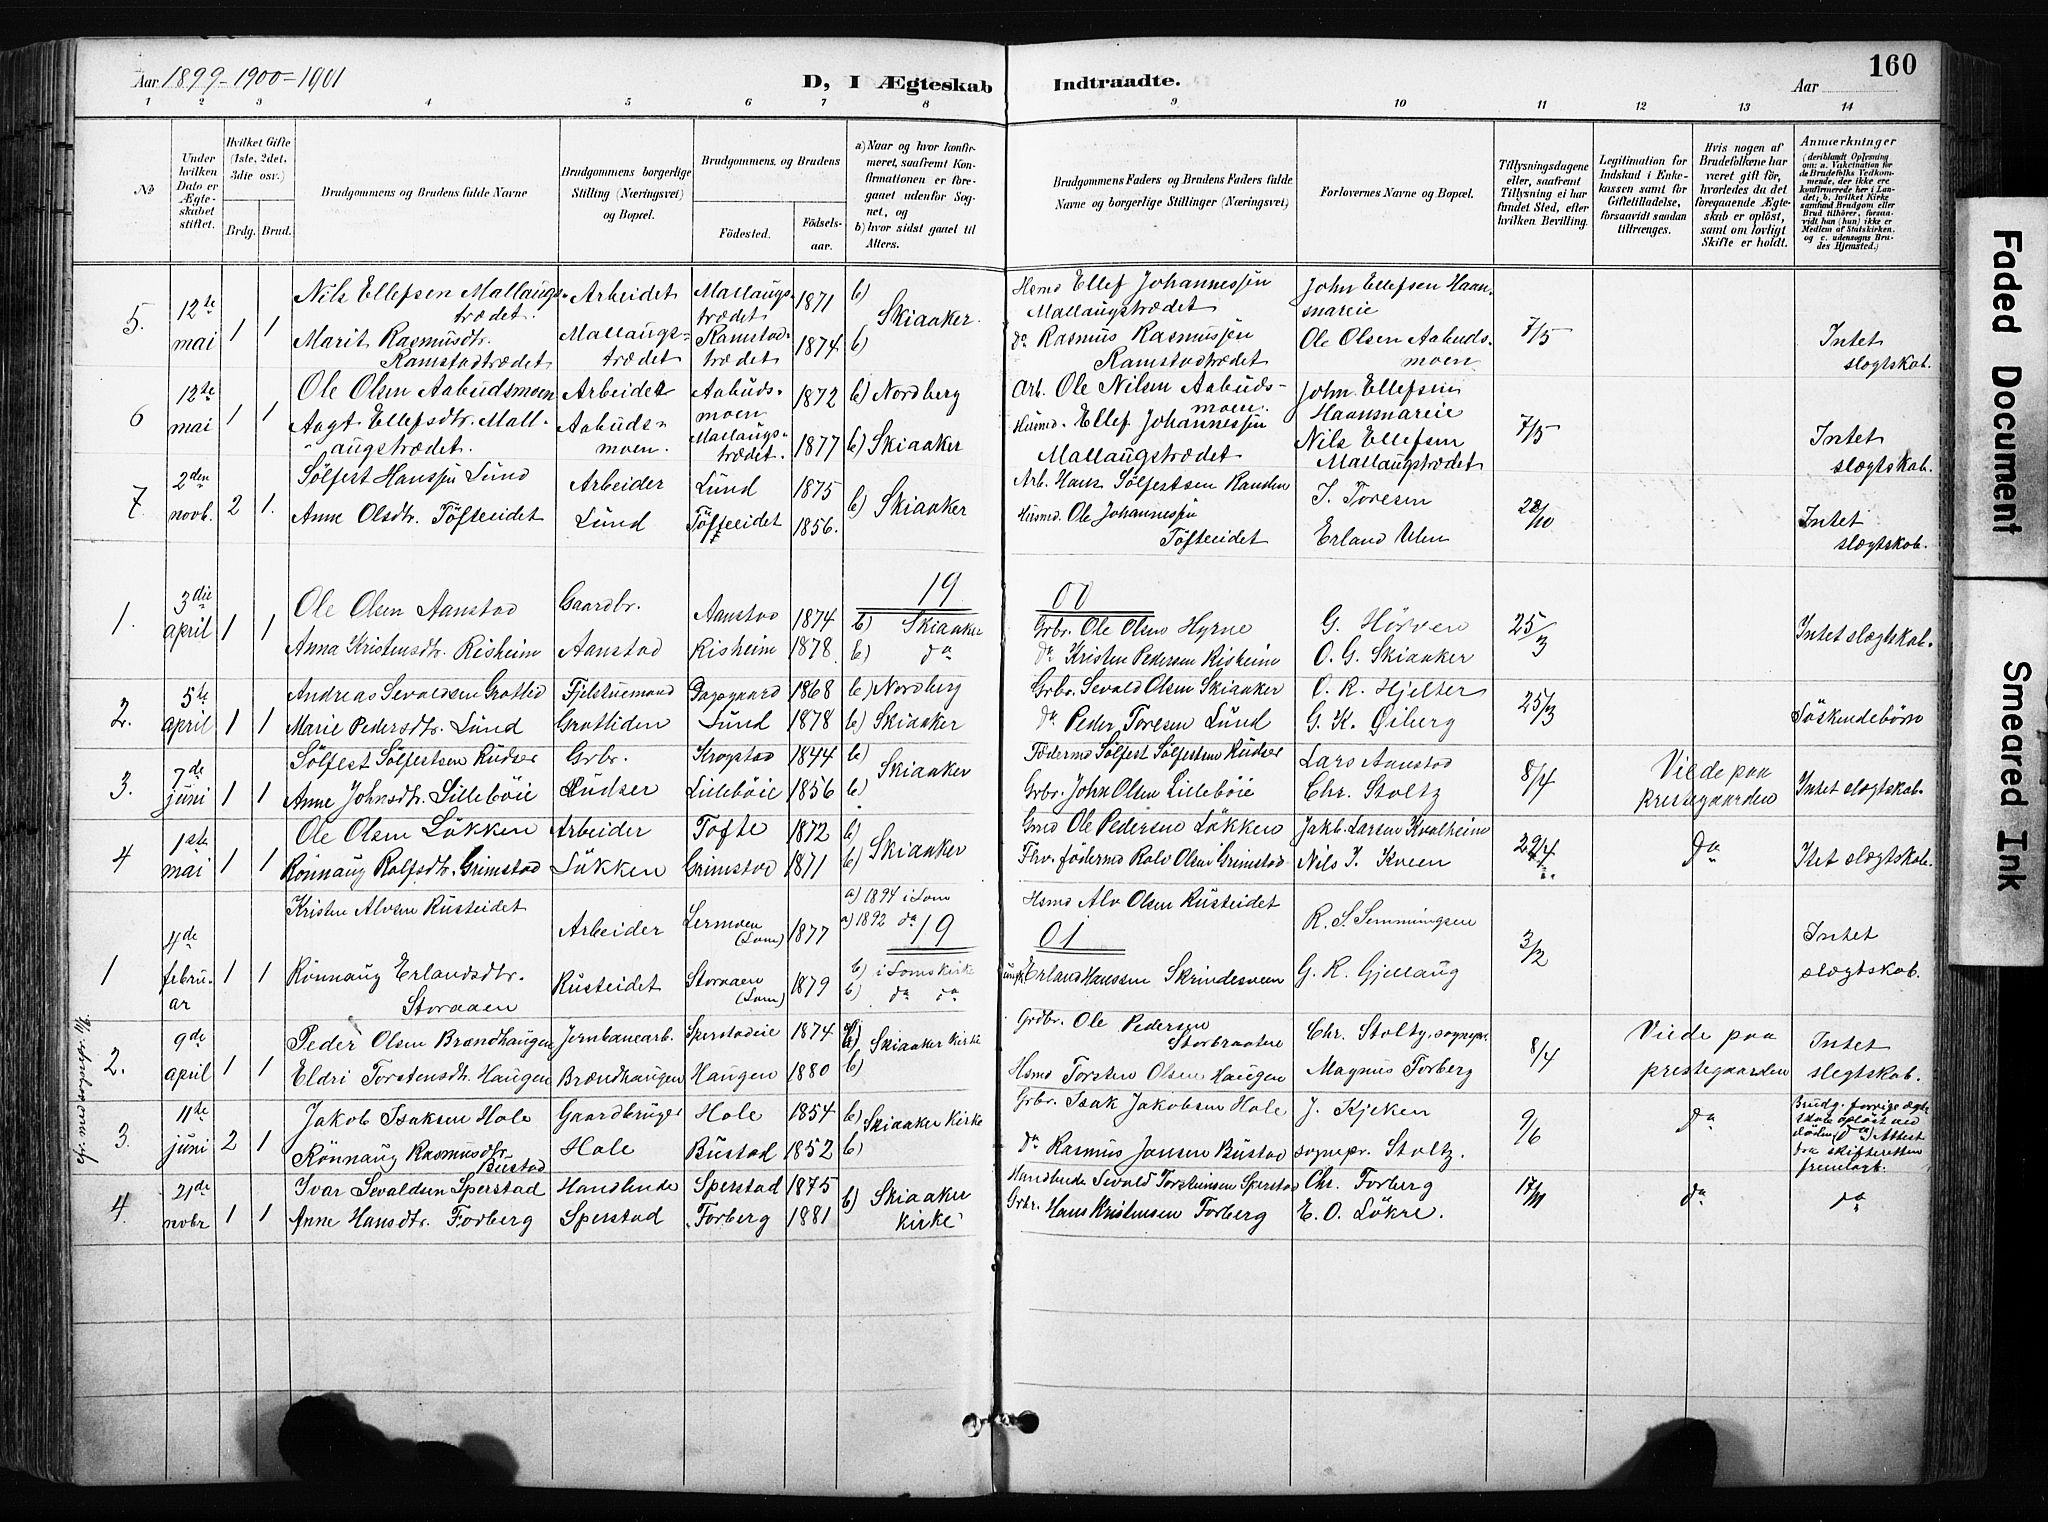 160
Aar 1899-1900=1901
D, I Ægteskab Indtraadte.
Aar
1 2 3 4 5 6 7 8 9 10 11 12 13 14
No
Under hvilken Dato er Ægteskabet stiftet.
Hvilket Gifte (1ste, 2det, 3die osv.)
Brdg. Brud.
Brudgommens og Brudens fulde Navne
Brudgommens borgerlige Stilling (Næringsvei) og Bopæl.
Brudgommens og Brudens
Fødested.
Fødselsaar.
a) Naar og hvor konfirmeret, saafremt Konfirmationen er foregaaet udenfor Sognet, og
b) hvor sidst gaaet til Alters.
Brudgommens Faders og Brudens Faders fulde Navne og borgerlige Stillinger (Næringsvei)
Forlovernes Navne og Bopæl.
Tillysningsdagene eller, saafremt Tillysning ei har fundet Sted, efter hvilken Bevilling.
Legitimation for Indskud i Enkekassen samt for Giftetilladelse, forsaavidt saadan tiltrænges.
Hvis nogen af Brudefolkene har været gift før, hvorledes da det foregaaende Ægteskab er opløst, samt om lovligt Skifte er holdt.
Anmærkninger
(deriblandt Oplysning om: a. Vakcination for de Brudefolks Vedkommende, der ikke ere konfirmerede her i Landet; b. hvilket Kirkesamfund Brudgom eller Brud tilhører, forsaavidt han (hun) ikke er Medlem af Statskirken, og c. udensogns Brudes Hjemsted.)
5. 12te mai 1 1
Nils Ellefsen Mallaugstrædet. Arbeidet Mallaugstrædet 1871 b) Skiaaker. Hsmd Ellef Johannessen Mallaugstrædet John Ellefsen Haansnareie 7/5
Marit Rasmusdtr. Ramstadtrædet Mallaugstrædet Ramstadtrædet 1874 b) do Rasmus Rasmussen Ramstadtrædet Ole Olsen Aabudsmoen Intet slegtskab.
6 12te mai 1 1
Ole Olsen Aabudsmoen Arbeidet Aabudsmoen 1872 b) Nordberg Arb. Ole Nilsen Aabudsmoen. John Ellefsen Haansnareie 7/5
Aagt Ellefsdtr. Mallaugstrædet. Aabudsmoen. Mallaugstrædet. 1877 b) Skiaaker Husmd. Ellef Johannessen Mallaugstrædet Nils Ellefsen Mallaugstrædet Intet slægtskab.
7 2den novb. 2 1.
Sølfest Hanssen Lund Arbeider Lund 1875 b) Skiaaker Arb. Hans Sølfestsen Randen I. Toresen 22/10
Anne Olsdtr. Tøfteeidet Lund Tøfteeidet 1856. Husmd. Ole Johannessen Tøfteeidet Erland Ulen Intet slægtskab.
19 00
1. 3die april 1 1
Ole Olsen Aanstad Gaardbr. Aanstad 1874 b) Skiaaker Grbr. Ole Olsen Hyrne G. Hørven 25/3
Anna Kristensdtr. Risheim Aanstad Risheim 1878. b) do do Kristen Pedersen Risheim O. G. Skiaaker Intet slægtskab.
2. 5te april 1 1
Andreas Sevaldsen Grotlid Fjelstuemand Dagsgaard 1868 b) Nordberg Grbr. Sevald Olsen Skiaaker O. R. Hjelter 25/3
Marie Pedersdtr. Lund Grotliden Lund 1878 b) Skiaaker do Peder Toresen Lund G. K. Øiberg Søskendebørn
3. 7de juni 1 1
Sølfest Sølfestsen Rudser Grbr. Krogstad 1844 b) Skiaaker Fødermd Sølfest Sølfestsen Rudser Lars Aanstad 8/4 Viede paa prestegaarden
Anne Johnsdtr. Lillebøie Rudser Lillebøie 1856 b) Grbr. John Olsen Lillebøie Chr. Stoltz Intet slægtskab.
4 1ste mai 1 1
Ole Olsen Løkken Arbeider Tofte 1872 b) Skiaaker Gmd Ole Pedersen Løkken Jakb. Larsen Kvalheim 29/4 do
Rønnaug Rolfsdtr. Grimstad Løkken Grimstad 1871 b) Fhv. fødermd Rolv Olsen Grimstad Nils I. Kveen Itet slægtskab.
19 01
1 4de februar 1 1
Kristen Alvsen Rusteidet Arbeider Lermoen (Lom) 1877 a) 1894 i Lom Hsmd Alv Olsen Rusteidet R. S. Semmingsen 3/2 Intet slægtskab.
a) 1892 do
Rønnaug Erlandsdtr. Storaaen Rusteidet Storaaen (Lom) 1879 b) i Lomskirke b) do do Erland Hanssen Skrindesveen G. R. Gjellaug
2. 9de april 1 1
Peder Olsen Brændhaugen Jernbanearb. Sperstadeie 1874 b) Skiaaker Kirke Grdbr. Ole Pedersen Storbraaten Chr. Stoltz, sognepr. 8/4 Viede paa prestegaarden
Eldri Torstensdtr. Haugen Brændhaugen Haugen 1880 b) Hsmd Torsten Olsen Haugen Magnus Forberg Intet slegtskab.
cfr. med sølvsefr. 11/6.
3. 11te juni 2 1
Jakob Isaksen Hole Gaardbruger Hole 1854 b) Skiaaker Kirke Grbr. Isak Jakobsen Hole J. Kjeken 9/6 do
Rønnaug Rasmusdtr. Bustad Hole Bustad 1852 b) do Rasmus Jansen Bustad sognepr. Stoltz.
Brudg. forrige ægteskab opløst ved døden (do) Attest fra skifteretten fremlagt.
4. 21de novbr 1 1
Ivar Sevaldsen Sperstad Handlende Sperstad 1875 b) Skiaaker Kirke Handlende Sevald Torsteinsen Sperstad Chr. Forberg 17/11 do do
Anne Hansdtr. Forberg Sperstad Forberg 1881 Grbr. Hans Kristensen Forberg E. O. Løkre.
Faded Document
Smeared Ink